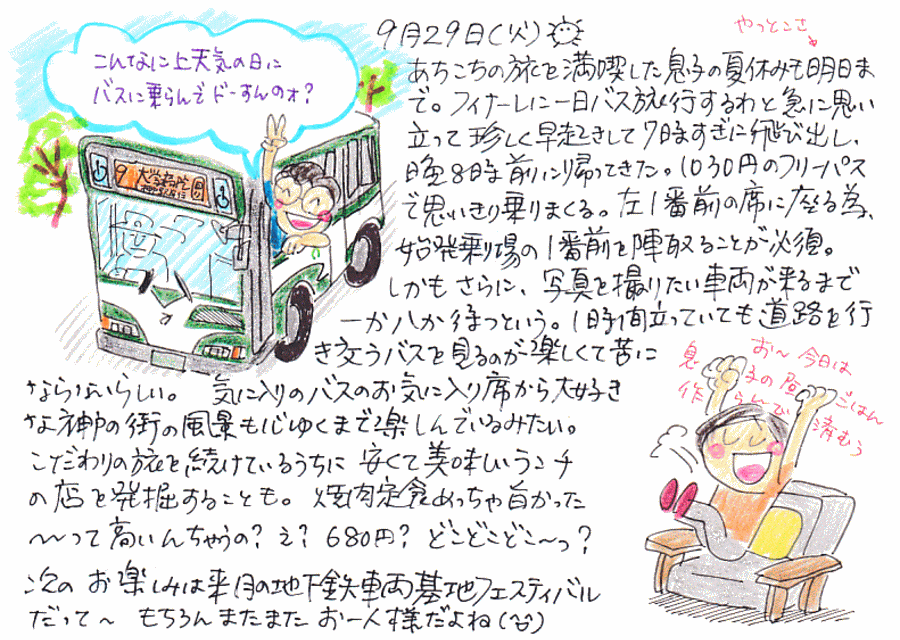 9月29日(火)
やっとこさ
こんなに上天気の日に
バスに乗らんでドーすんのォ?
9 大学病院
あちこちの旅を満喫した息子の夏休みも明日ま
で。フィナーレに一日バス旅行するわと急に思い
立って珍しく早起きして7時すぎに飛び出し、
晩8時前に帰ってきた。1030円のフリーパス
で思いきり乗りまくる。左1番前の席に座る為、
始発乗場の1番前を陣取ることが必須。
しかもさらに、写真を撮りたい車両が来るまで
一か八か待つという。1時間立っていても道路を行
き交うバスを見るのが楽しくて苦に
ならないらしい。気に入りのバスのお気に入り席から大好き
な神戸の街の風景も心ゆくまで楽しんでいるみたい。
こだわりの旅を続けているうちに安くて美味しいランチ
の店を発掘することも。焼肉定食めっちゃ旨かった
〜って高いんちゃうの?え?680円?どこどこどこ〜っ?
次のお楽しみは来月の地下鉄車両基地フェスティバル
だって〜 もちろんまたまたお一人様だよね
お〜今日は
息子の昼ごはん
作らんで済むぅ